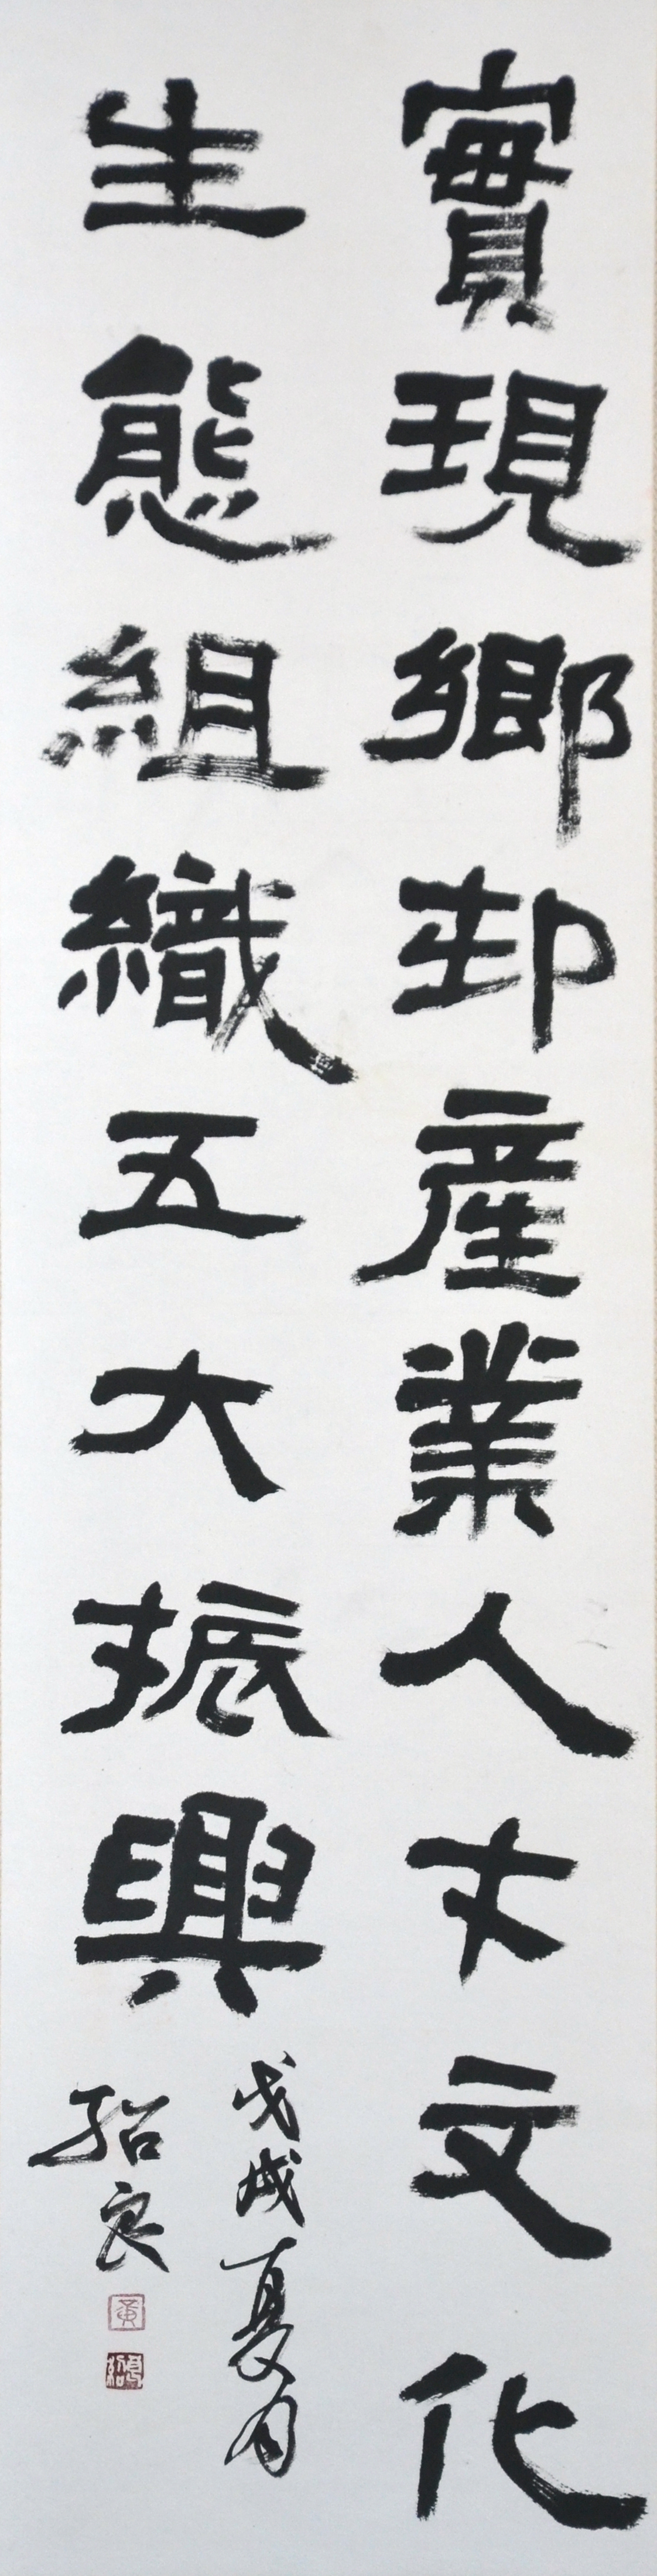 實現鄉邨產業人才文化
生態組織五大振興
戊戌夏月
紹良
黃
紹良